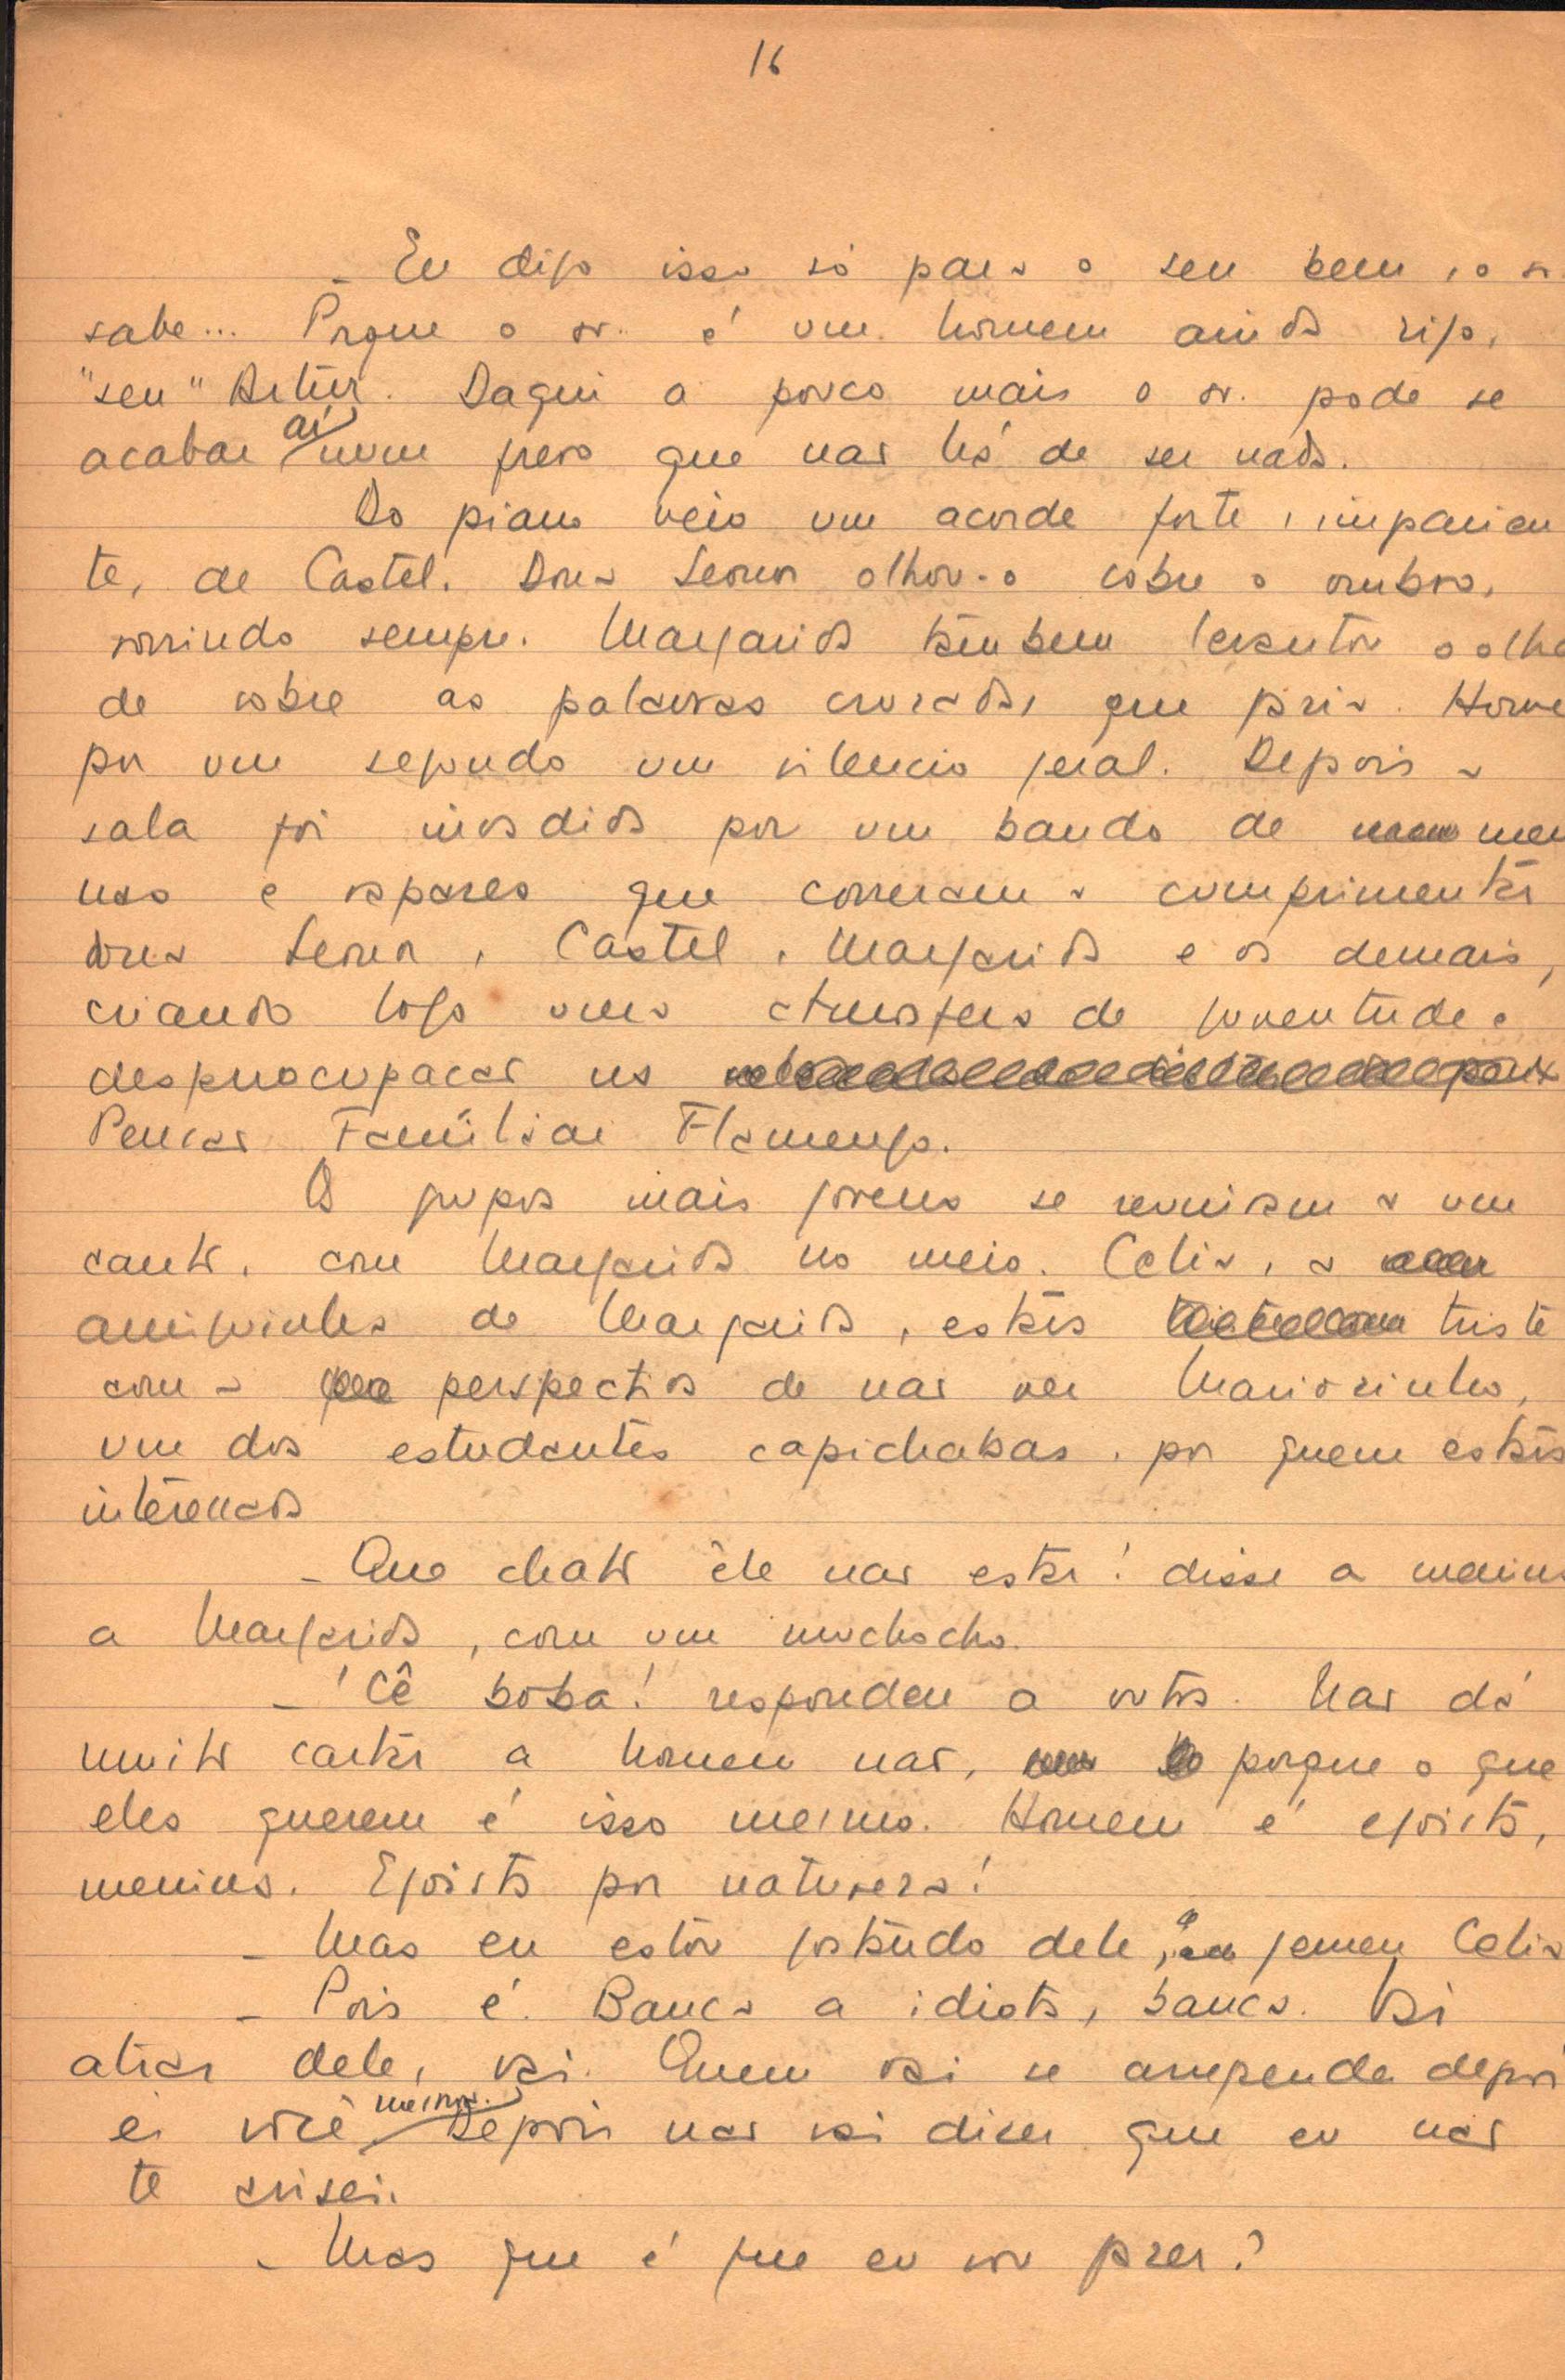 16
- Eu digo isso só para o seu bem, o sr.
sabe... Porque o sr. é um homem ainda rijo,
"seu" Artur. Daqui a pouco mais o sr. pode se
acabar aí num frevo que não há de ser nada.
Do piano veio um acorde forte, impacien
te, de Castel. Dona Leonor olhou-o sobre o ombro,
sorrindo sempre. Margarida tambem levantou o olho
de sobre as palavras cruzadas que fazia. Houve
por um segundo um silencio geral. Depois a
sala foi invadida por um bando de men
nas e rapazes que correram a cumprimentar
dona Leonor, Castel, Margarida e os demais,
criando logo uma atmosfera de juventude e
despreocupação na
Pensão Familiar Flamengo.
Os grupos mais jovens se reuniram a um
canto, com Margarida no meio. Celia, a
amiguinha de Margarida, estava triste
com a perspectiva de não ver Mariozinho,
um dos estudantes capichabas, por quem estava
interessada
- Que chato êle não estar! disse a menina
a Margarida, com um muchocho.
- 'Cê boba! respondeu a outra. Não dá
muito cartaz a homem não, porque o que
eles querem é isso mesmo. Homem é egoista,
menina. Egoista por natureza!
- Mas eu estou gostando dele, gemeu Celia
- Pois é. Banca a idiota, banca. Vai
atrás dele, vai. Quem vai se arrepender depois
é você mesma. Depois não vai dizer que eu não
te avisei.
- Mas que é que eu vou fazer?